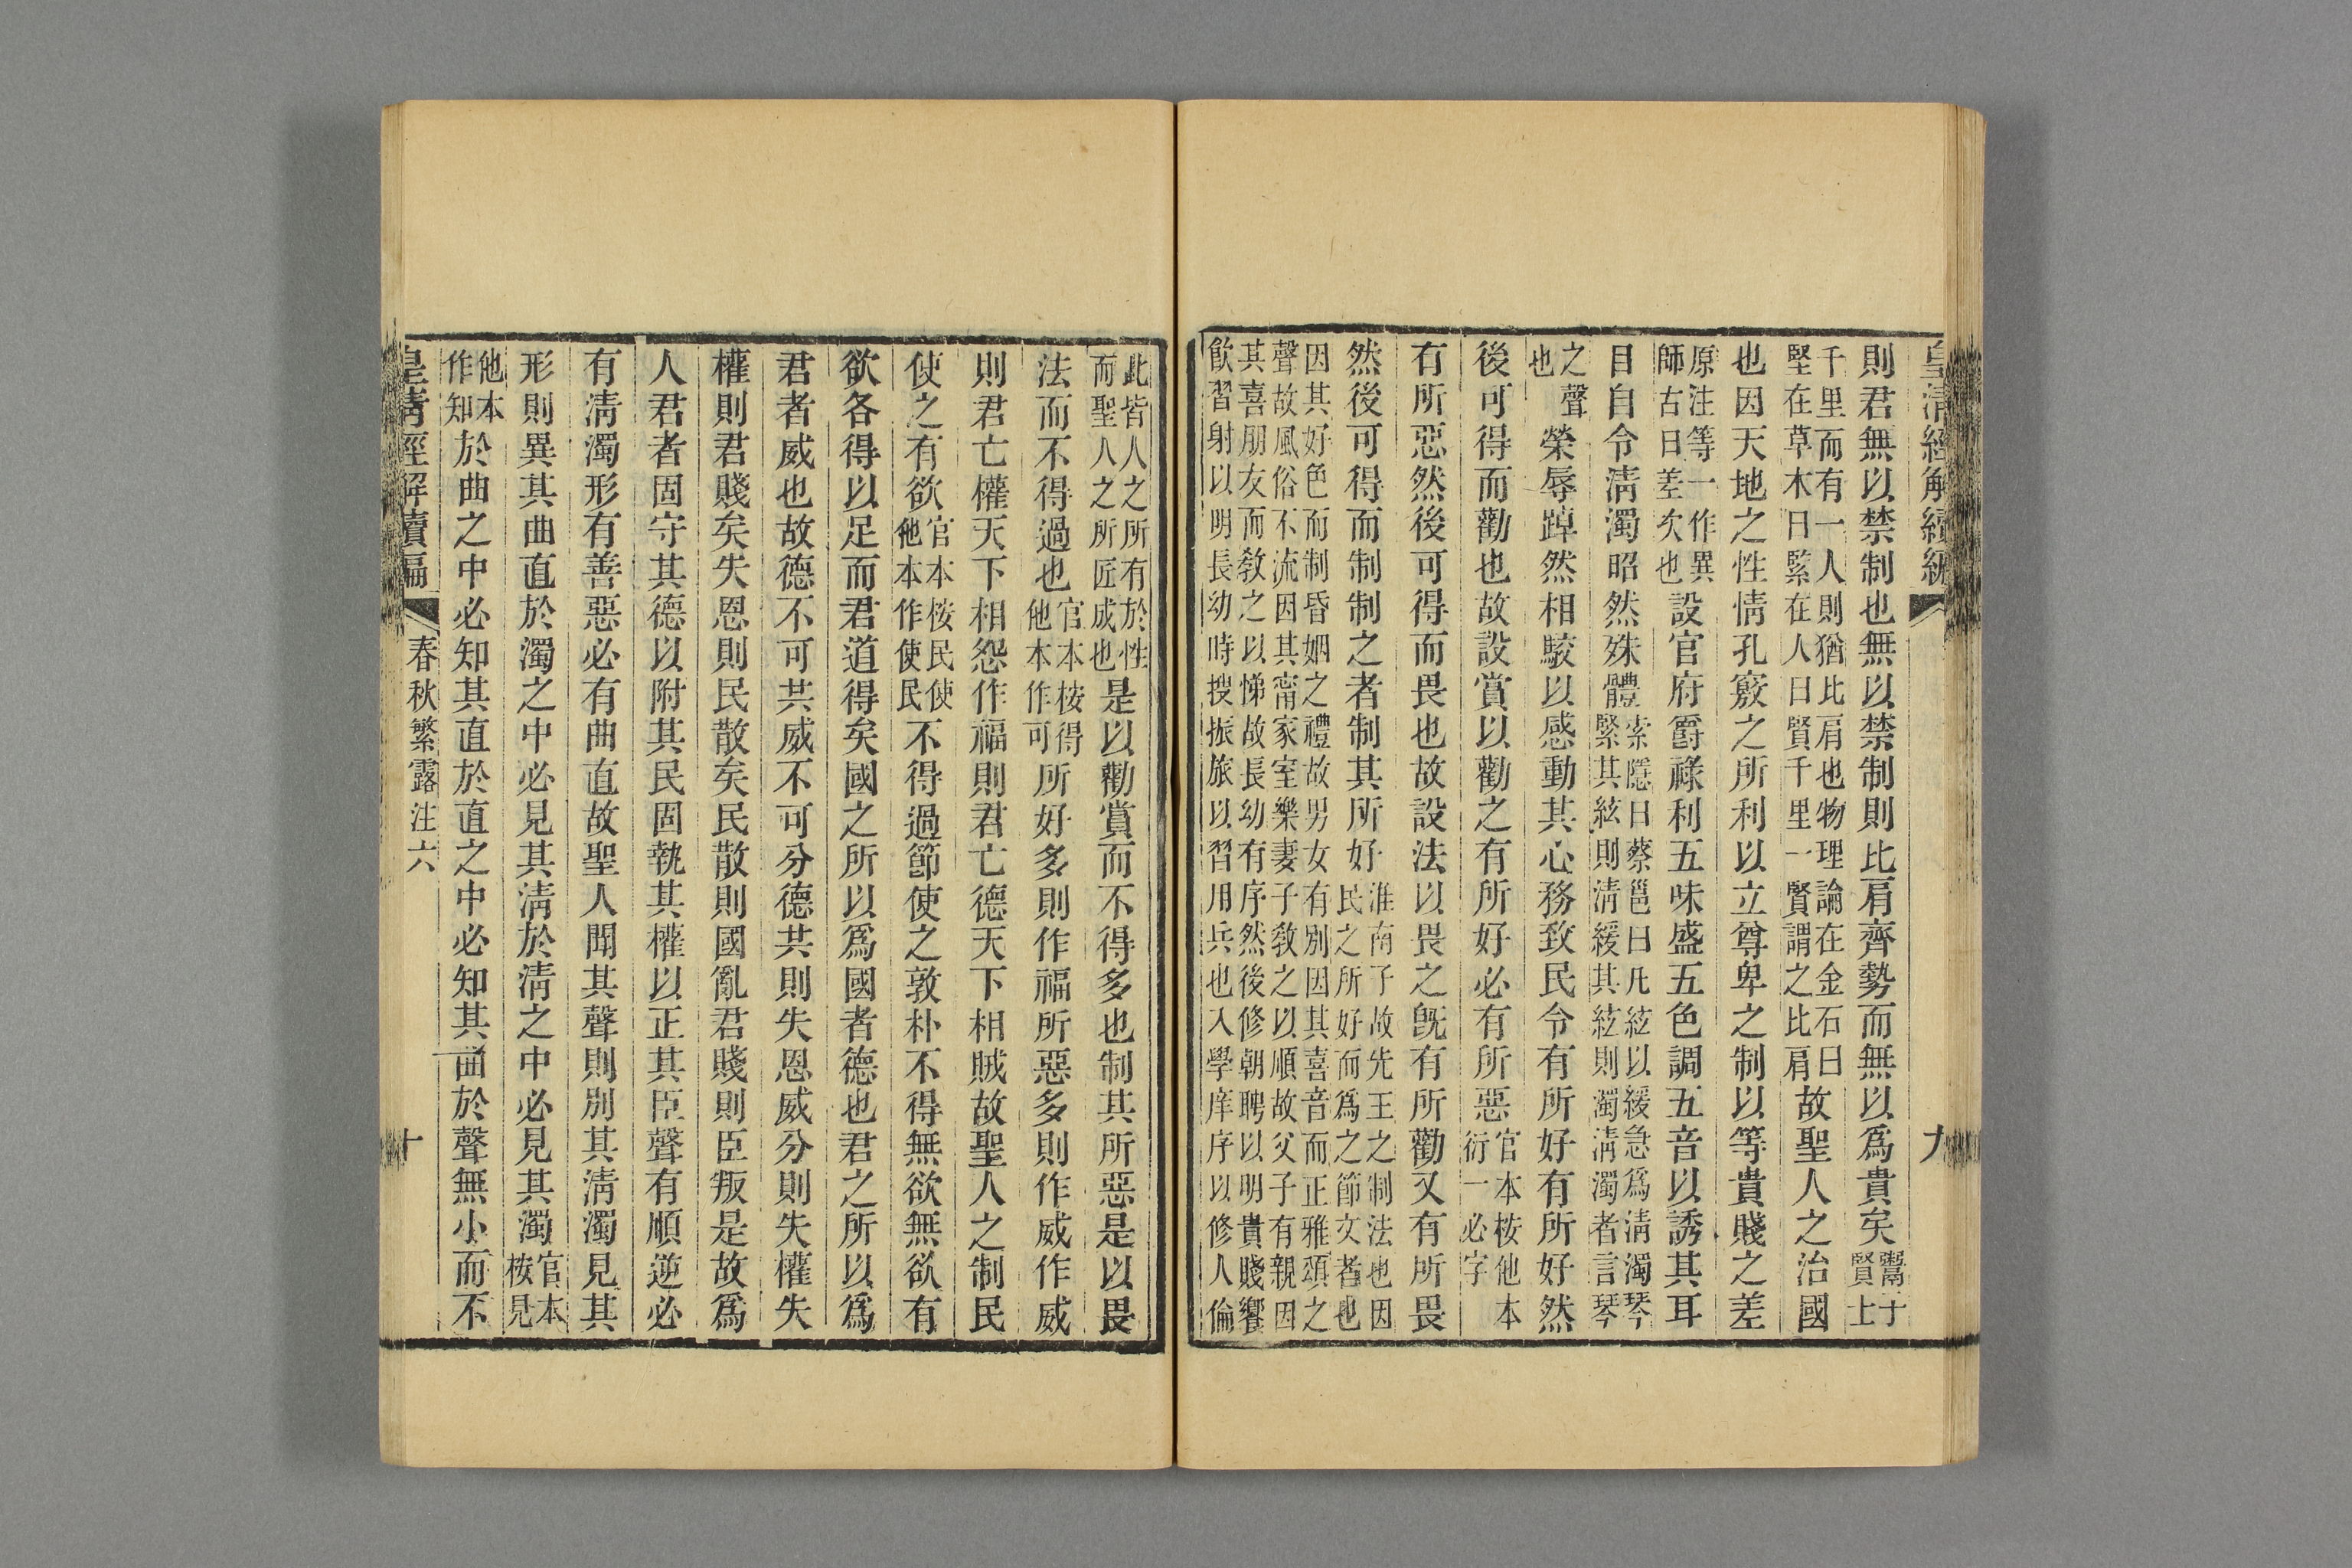 皇清經解續編 九
則君無以禁制也無以禁制則比肩齊勢而無以爲貴矣鬻子賢上
千里而有一人則猶比肩也物理論在金石曰堅在草木曰緊在人曰賢千里一賢謂之比肩故聖人之治國
也因天地之性情孔竅之所利以立尊卑之制以等貴賤之差
原注等一作異師古曰差次也設官府爵祿利五味盛五色調五音以誘其耳
目自令清濁昭然殊體索隱曰蔡邕曰凡絃以緩急爲清濁琴緊其絃則清緩其絃則濁清濁者言琴
之聲也榮辱踔然相駮以感動其心務致民令有所好有所好然
後可得而勸也故設賞以勸之有所好必有所惡官本桉他本衍一必字
有所惡然後可得而畏也故設法以畏之旣有所勸又有所畏
然後可得而制制之者制其所好淮南子故先王之制法也因民之所好而爲之節文者也
因其好色而制昏姻之禮故男女有別因其喜音而正雅頌之聲故風俗不流因其甯家室樂妻子敎之以順故父子有親因
其喜朋友而敎之以悌故長幼有序然後修朝聘以明貴賤饗飮習射以明長幼時搜振旅以習用兵也入學庠序以修人倫
此皆人之所有於性而聖人之所匠成也是以勸賞而不得多也制其所惡是以畏
法而不得過也官本桉得他本作可所好多則作福所惡多則作威作威
則君亡權天下相怨作福則君亡德天下相賊故聖人之制民
使之有欲官本桉民使他本作使民不得過節使之敦朴不得無欲無欲有
欲各得以足而君道得矣國之所以爲國者德也君之所以爲
君者威也故德不可共威不可分德共則失恩威分則失權失
權則君賤矣失恩則民散矣民散則國亂君賤則臣叛是故爲
人君者固守其德以附其民固執其權以正其臣聲有順逆必
有清濁形有善惡必有曲直故聖人聞其聲則別其清濁見其
形則異其曲直於濁之中必見其清於清之中必見其濁官本桉見
他本作知於曲之中必知其直於直之中必知其曲於聲無小而不
皇清經解續編 春秋繁露注六 十